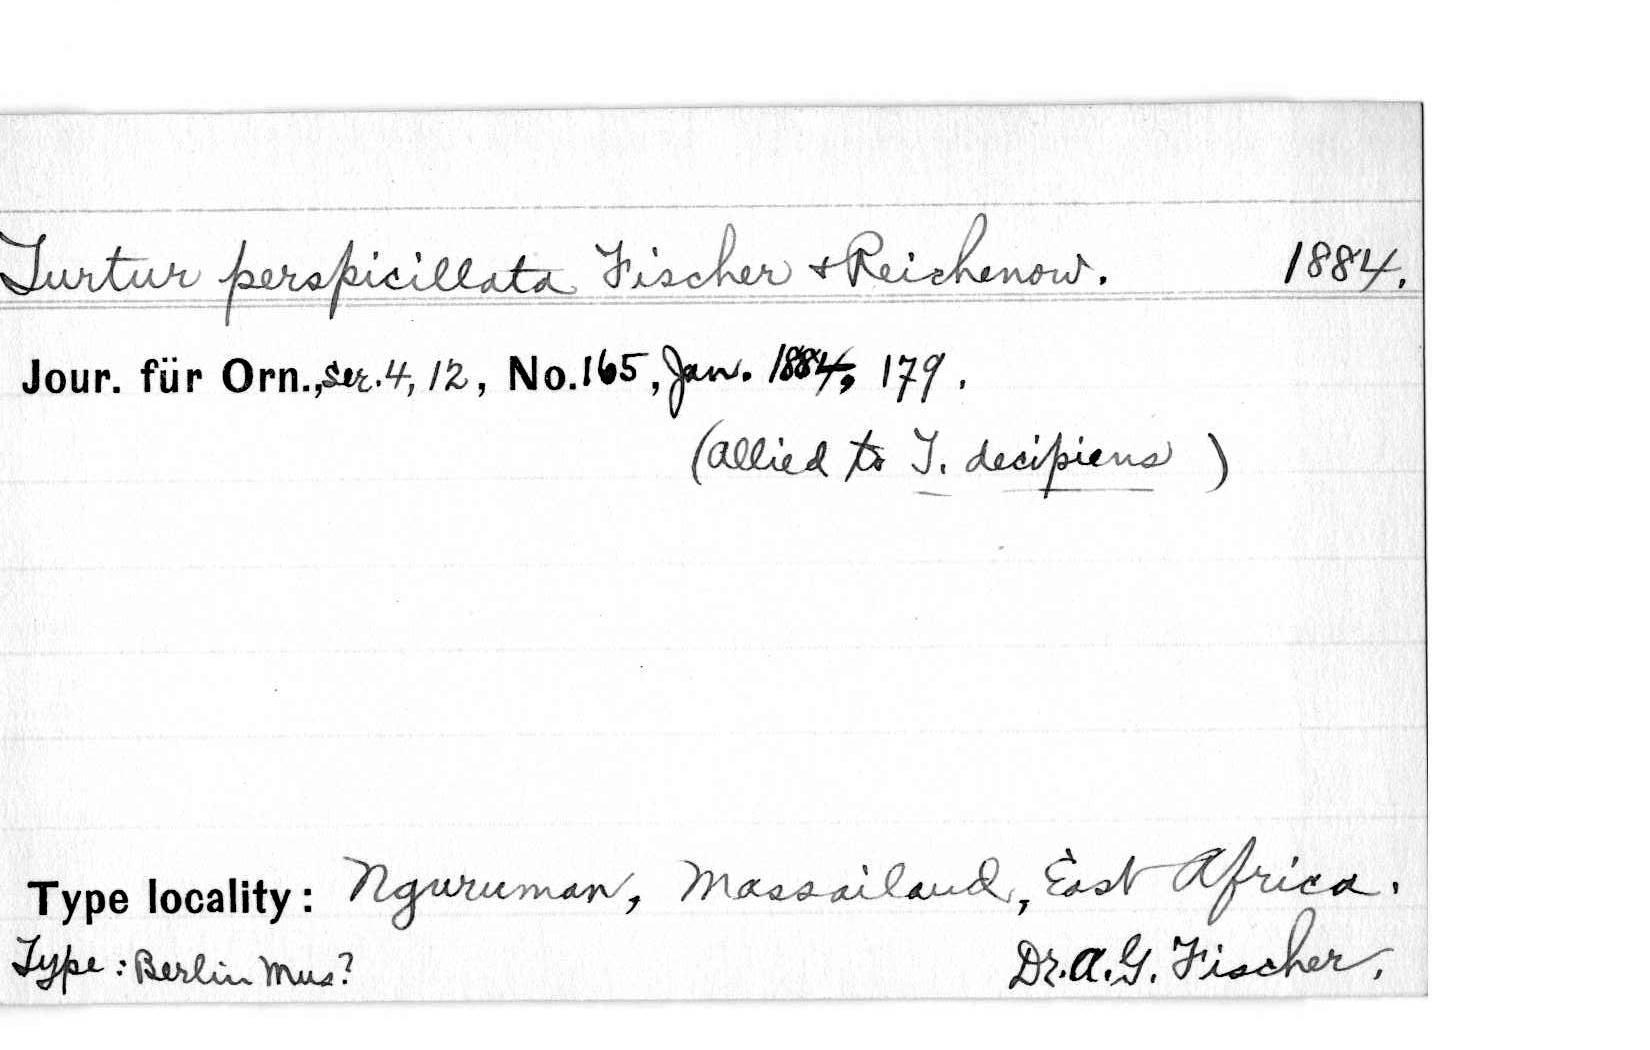 Turtur perspicillata Fischer & Reichenow. 1884.
Jour. für Orn., ser. 4, 12, No. 165, Jan. 1884, 179.
(allied to T. decipiens)
Type locality: Nguruman, Massailand, East Africa.
Type: Berlin Mus? Dr. A. G. Fischer.